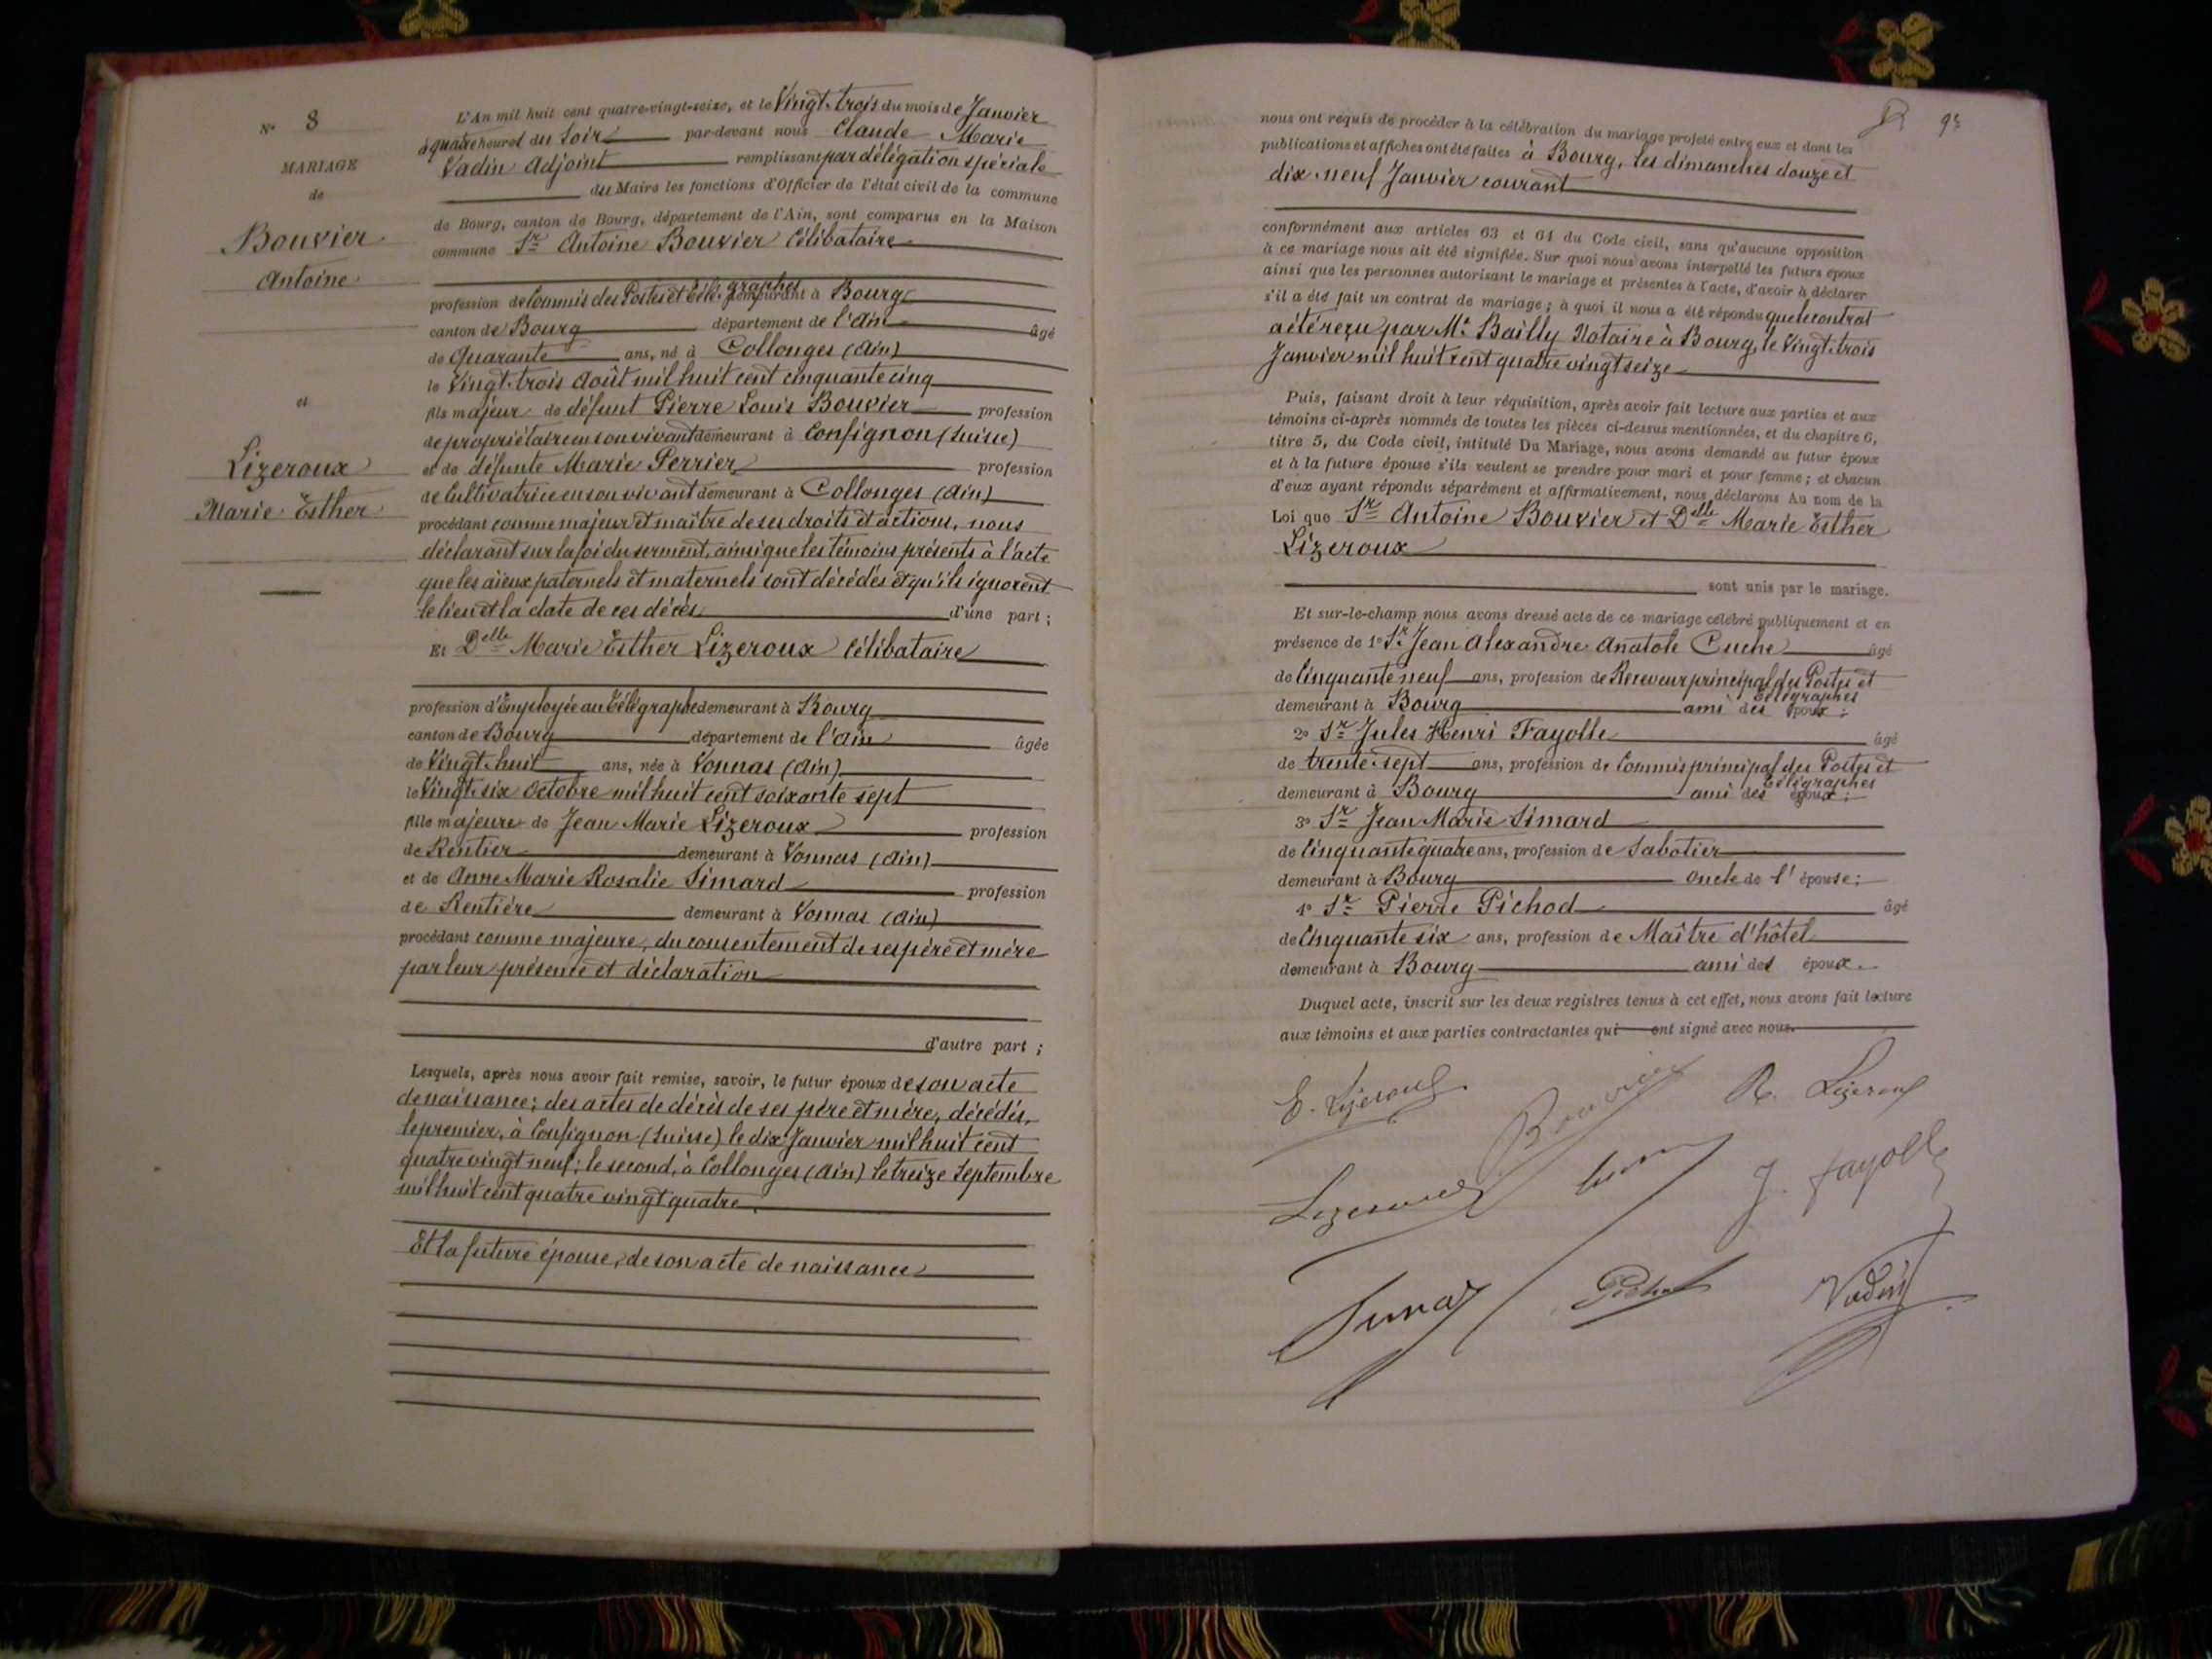 N° 8
MARIAGE
de
Bouvier
Antoine
et
Lizeroux
Marie Esther
L'An mil huit cent quatre-vingt-seize, et le Vingt-trois du mois de Janvier
à quatre heures du Soir par-devant nous Claude Marie
Vadin Adjoint remplissant par délégation spéciale
du Maire les fonctions d'Officier de l'état civil de la commune
de Bourg, canton de Bourg, département de l'Ain, sont comparus en la Maison
commune Sr Antoine Bouvier Célibataire
profession de Commis des Postes et Télégraphes demeurant à Bourg
canton de Bourg département de l'Ain âgé
de Quarante ans, né à Collonges (Ain)
le Vingt-trois Août mil huit cent cinquante cinq
fils majeur de défunt Pierre Louis Bouvier profession
de propriétaire en son vivant demeurant à Confignon (Suisse)
et de défunte Marie Perrier profession
de Cultivatrice en son vivant demeurant à Collonges (Ain)
procédant comme majeur et maître de ses droits et actions, nous
déclarant sur la foi du serment, ainsi que les témoins présents à l'acte
que les aïeux paternels et maternels sont décédés et qu'ils ignorent
le lieu et la date de ces décès d'une part ;
Et Delle Marie Esther Lizeroux Célibataire
profession d'Employée au Télégraphe demeurant à Bourg
canton de Bourg département de l'Ain âgée
de Vingt-huit ans, née à Vonnas (Ain)
le Vingt-six Octobre mil huit cent soixante sept
fille majeure de Jean Marie Lizeroux profession
de Rentier demeurant à Vonnas (Ain)
et de Anne Marie Rosalie Simard profession
de Rentière demeurant à Vonnas (Ain)
procédant comme majeure, du consentement de ses père et mère
par leur présence et déclaration
d'autre part ;
Lesquels, après nous avoir fait remise, savoir, le futur époux de son acte
de naissance ; des actes de décès de ses père et mère, décédés,
le premier, à Confignon (Suisse) le dix Janvier mil huit cent
quatre vingt neuf ; le second, à Collonges (Ain) le treize Septembre
mil huit cent quatre vingt quatre.
Et la future épouse, de son acte de naissance
9
nous ont requis de procéder à la célébration du mariage projeté entre eux et dont les
publications et affiches ont été faites à Bourg, les dimanches douze et
dix-neuf Janvier courant
conformément aux articles 63 et 64 du Code civil, sans qu'aucune opposition
à ce mariage nous ait été signifiée. Sur quoi nous avons interpellé les futurs époux
ainsi que les personnes autorisant le mariage et présentes à l'acte, d'avoir à déclarer
s'il a été fait un contrat de mariage ; à quoi il nous a été répondu que le contrat
a été reçu par Me Bailly Notaire à Bourg, le Vingt-trois
Janvier mil huit cent quatre vingt seize
Puis, faisant droit à leur réquisition, après avoir fait lecture aux parties et aux
témoins ci-après nommés de toutes les pièces ci-dessus mentionnées, et du chapitre 6,
titre 5, du Code civil, intitulé Du Mariage, nous avons demandé au futur époux
et à la future épouse s'ils veulent se prendre pour mari et pour femme ; et chacun
d'eux ayant répondu séparément et affirmativement, nous déclarons Au nom de la
Loi que Sr Antoine Bouvier et Delle Marie Esther
Lizeroux
sont unis par le mariage.
Et sur-le-champ nous avons dressé acte de ce mariage célébré publiquement et en
présence de 1° Sr Jean Alexandre Anatole Cuche âgé
de Cinquante neuf ans, profession de Receveur principal des Postes et Télégraphes
demeurant à Bourg ami des époux ;
2° Sr Jules Henri Fayolle âgé
de trente-sept ans, profession de Commis principal des Postes et Télégraphes
demeurant à Bourg ami des époux ;
3° Sr Jean Marie Simard
de Cinquante quatre ans, profession de Sabotier
demeurant à Bourg oncle de l'épouse ;
4° Sr Pierre Pichod âgé
de Cinquante six ans, profession de Maître d'hôtel
demeurant à Bourg ami des époux.
Duquel acte, inscrit sur les deux registres tenus à cet effet, nous avons fait lecture
aux témoins et aux parties contractantes qui ont signé avec nous.
E. Lizeroux Bouvier R. Lizeroux
Lizeroux J. Fayolle
Simard Pichod Vadin